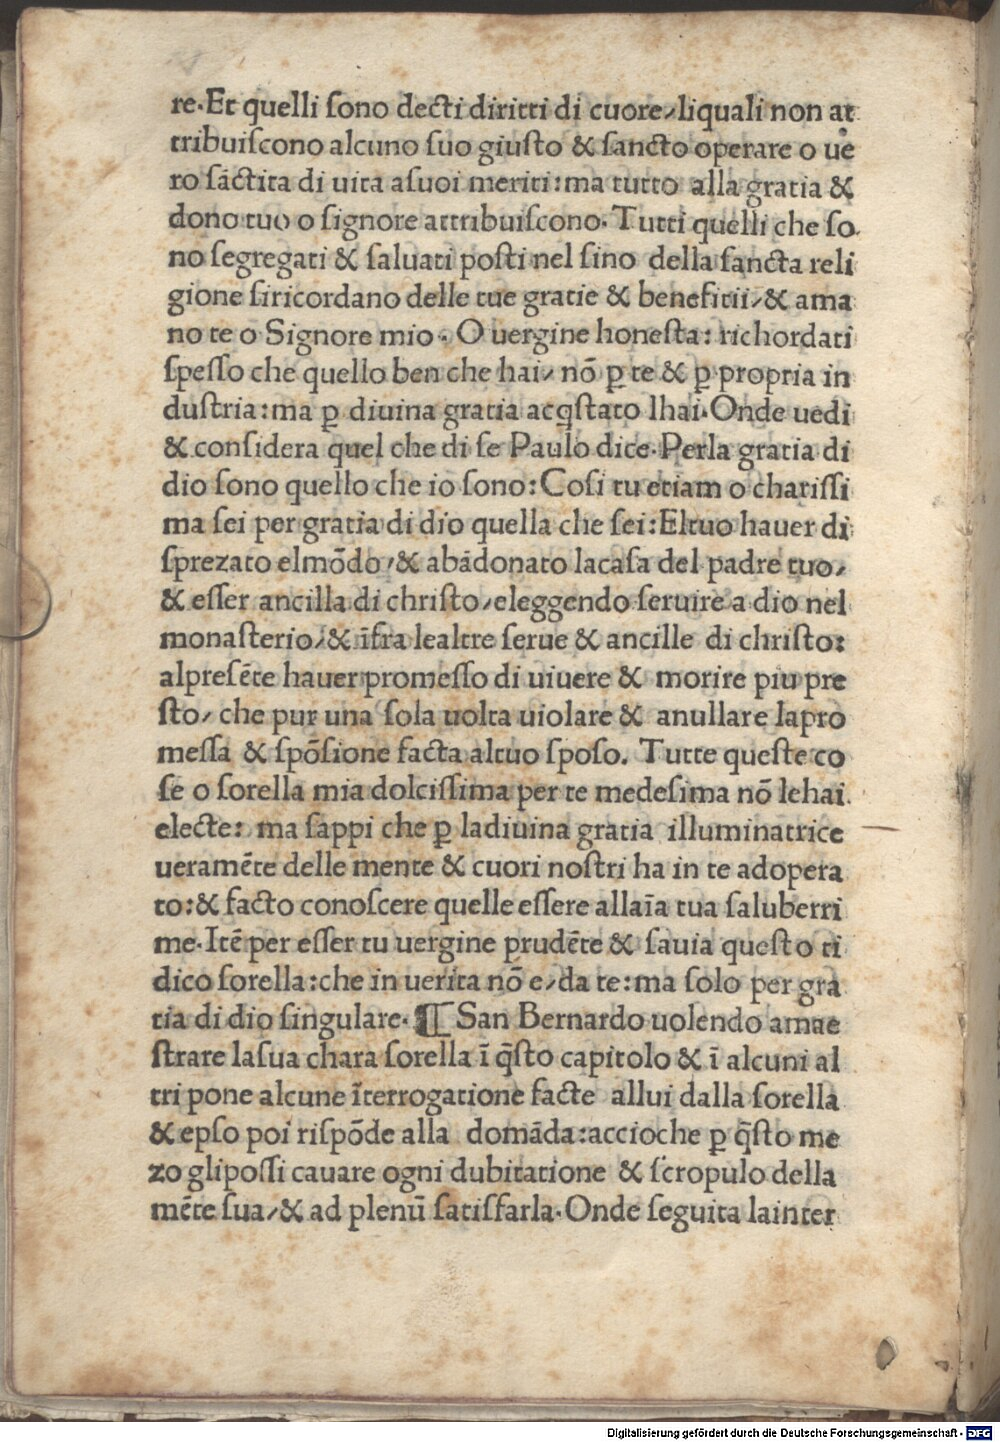 re·Et quelli ſono decti diritti di cuore/liquali non at
tribuiſcono alcuno ſuo giuſto & ſancto operare o ue
ro ſāctita di uita aſuoi meriti:ma tutto alla gratia &
dono tuo o ſignore attribuiſcono· Tutti quelli che ſo
no ſegregati & ſaluati poſti nel ſino della ſancta reli
gione ſiricordano delle tue gratie & benefitii/& ama
no te o Signore mio· O uergine honeſta: richordati
ſpeſſo che quello ben che hai/ nō ꝑ te & ꝑ propria in
duſtria:ma ꝑ diuina gratia acqſtato lhai·Onde uedi
& conſidera quel che di ſe Paulo dice·Perla gratia di
dio ſono quello che io ſono:Coſi tu etiam o chariſſi
ma ſei per gratia di dio quella che ſei:Eltuo hauer di
ſprezato elmōdo/& abādonato lacaſa del padre tuo/
& eſſer ancilla di chriſto/eleggendo ſeruire a dio nel
monaſterio/& īfra lealtre ſerue & ancille di chriſto:
alpreſēte hauer promeſſo di uiuere & morire piu pre
ſto/ che pur una ſola uolta uiolare & anullare lapro
meſſa & ſpōſione facta altuo ſpoſo. Tutte queſte co
ſe o ſorella mia dolciſſima per te medeſima nō lehai
electe: ma ſappi che ꝑ ladiuina gratia illuminatrice
ueramēte delle mente & cuori noſtri ha in te adopera
to:& facto conoſcere quelle eſſere allaīa tua ſaluberri
me·Itē per eſſer tu uergine prudēte & ſauia queſto ti
dico ſorella:che in uerita nō e/da te:ma ſolo per gra
tia di dio ſingulare·¶ San Bernardo uolendo amae
ſtrare laſua chara ſorella ī q̄ſto capitolo & ī alcuni al
tri pone alcune īterrogatione facte allui dalla ſorella
& epſo poi riſpōde alla domāda:accioche ꝑ q̄ſto me
zo glipoſſi cauare ogni dubitatione & ſcropulo della
mēte ſua/& ad plenū ſatiſfarla·Onde ſeguita lainter
Digitalisierung gefördert durch die Deutsche Forschungsgemeinschaft - DFG